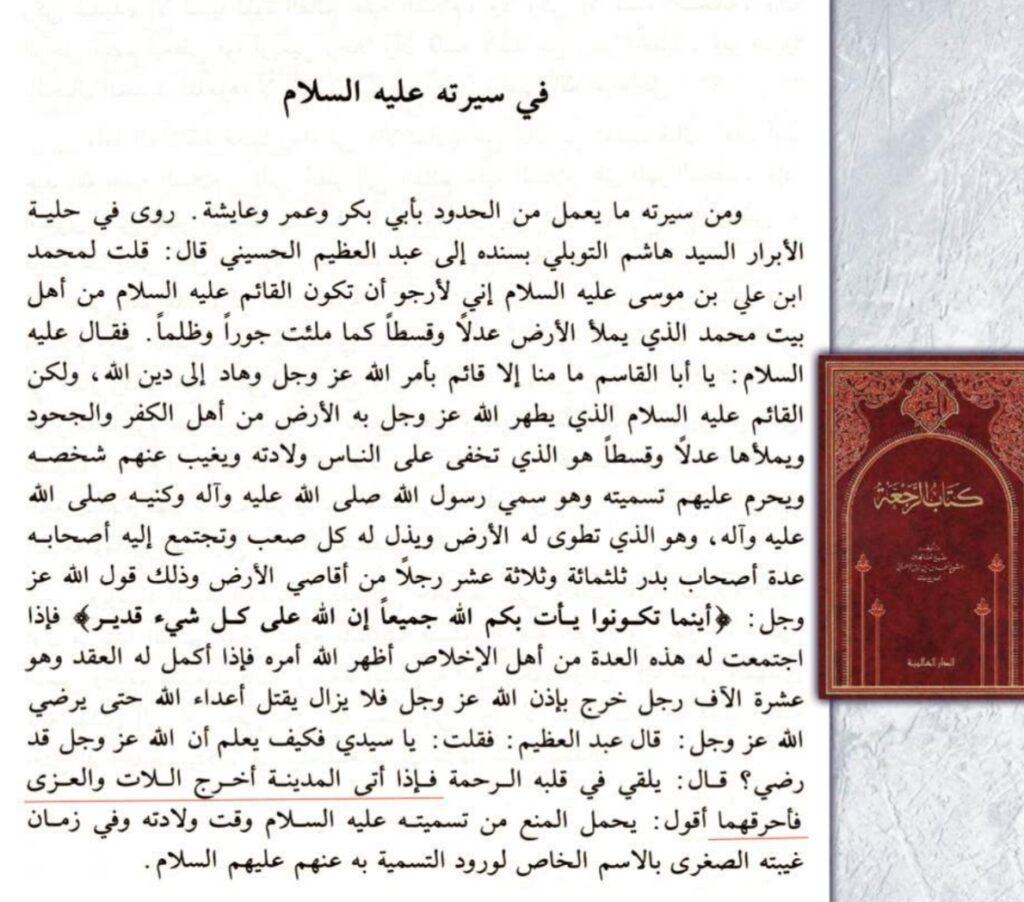 في سيرته عليه السلام
ومن سيرته ما يعمل من الحدود بأبي بكر وعمر وعايشة. روى في حلية
الأبرار السيد هاشم التوبلي بسنده إلى عبد العظيم الحسيني قال: قلت لمحمد
ابن علي بن موسى عليه السلام إني لأرجو أن تكون القائم عليه السلام من أهل
بيت محمد الذي يملأ الأرض عدلاً وقسطاً كما ملئت جوراً وظلماً. فقال عليه
السلام: يا أبا القاسم ما منا إلا قائم بأمر الله عز وجل وهاد إلى دين الله، ولكن
القائم عليه السلام الذي يطهر الله عز وجل به الأرض من أهل الكفر والجحود
ويملأها عدلاً وقسطاً هو الذي تخفى على الناس ولادته ويغيب عنهم شخصه
ويحرم عليهم تسميته وهو سمي رسول الله صلى الله عليه وآله وكنيه صلى الله
عليه وآله، وهو الذي تطوى له الأرض ويذل له كل صعب وتجتمع إليه أصحابه
عدة أصحاب بدر ثلثمائة وثلاثة عشر رجلاً من أقاصي الأرض وذلك قول الله عز
وجل: ﴿أينما تكونوا يأت بكم الله جميعاً إن الله على كل شيء قدير﴾ فإذا
اجتمعت له هذه العدة من أهل الإخلاص أظهر الله أمره فإذا أكمل له العقد وهو
عشرة الآف رجل خرج بإذن الله عز وجل فلا يزال يقتل أعداء الله حتى يرضي
الله عز وجل: قال عبد العظيم: فقلت: يا سيدي فكيف يعلم أن الله عز وجل قد
رضي؟ قال: يلقي في قلبه الرحمة فإذا أتى المدينة أخرج اللات والعزى
فأحرقهما أقول: يحمل المنع من تسميته عليه السلام وقت ولادته وفي زمان
غيبته الصغرى بالاسم الخاص لورود التسمية به عنهم عليهم السلام.
كتاب الرجعة
الدار العالمية